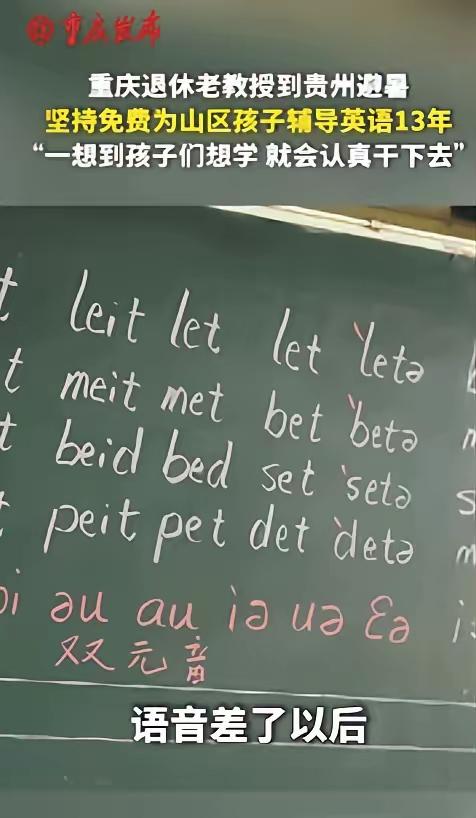 重庆发布
重庆退休老教授到贵州避暑
坚持免费为山区孩子辅导英语13年
“一想到孩子们想学 就会认真干下去”
t leit let let ˋletə
t meit met bet ˋbetə
t beid bed set ˋsetə s
t peit pet det ˋdetə m
əu au iə uə ɛə i
双元音
语音差了以后